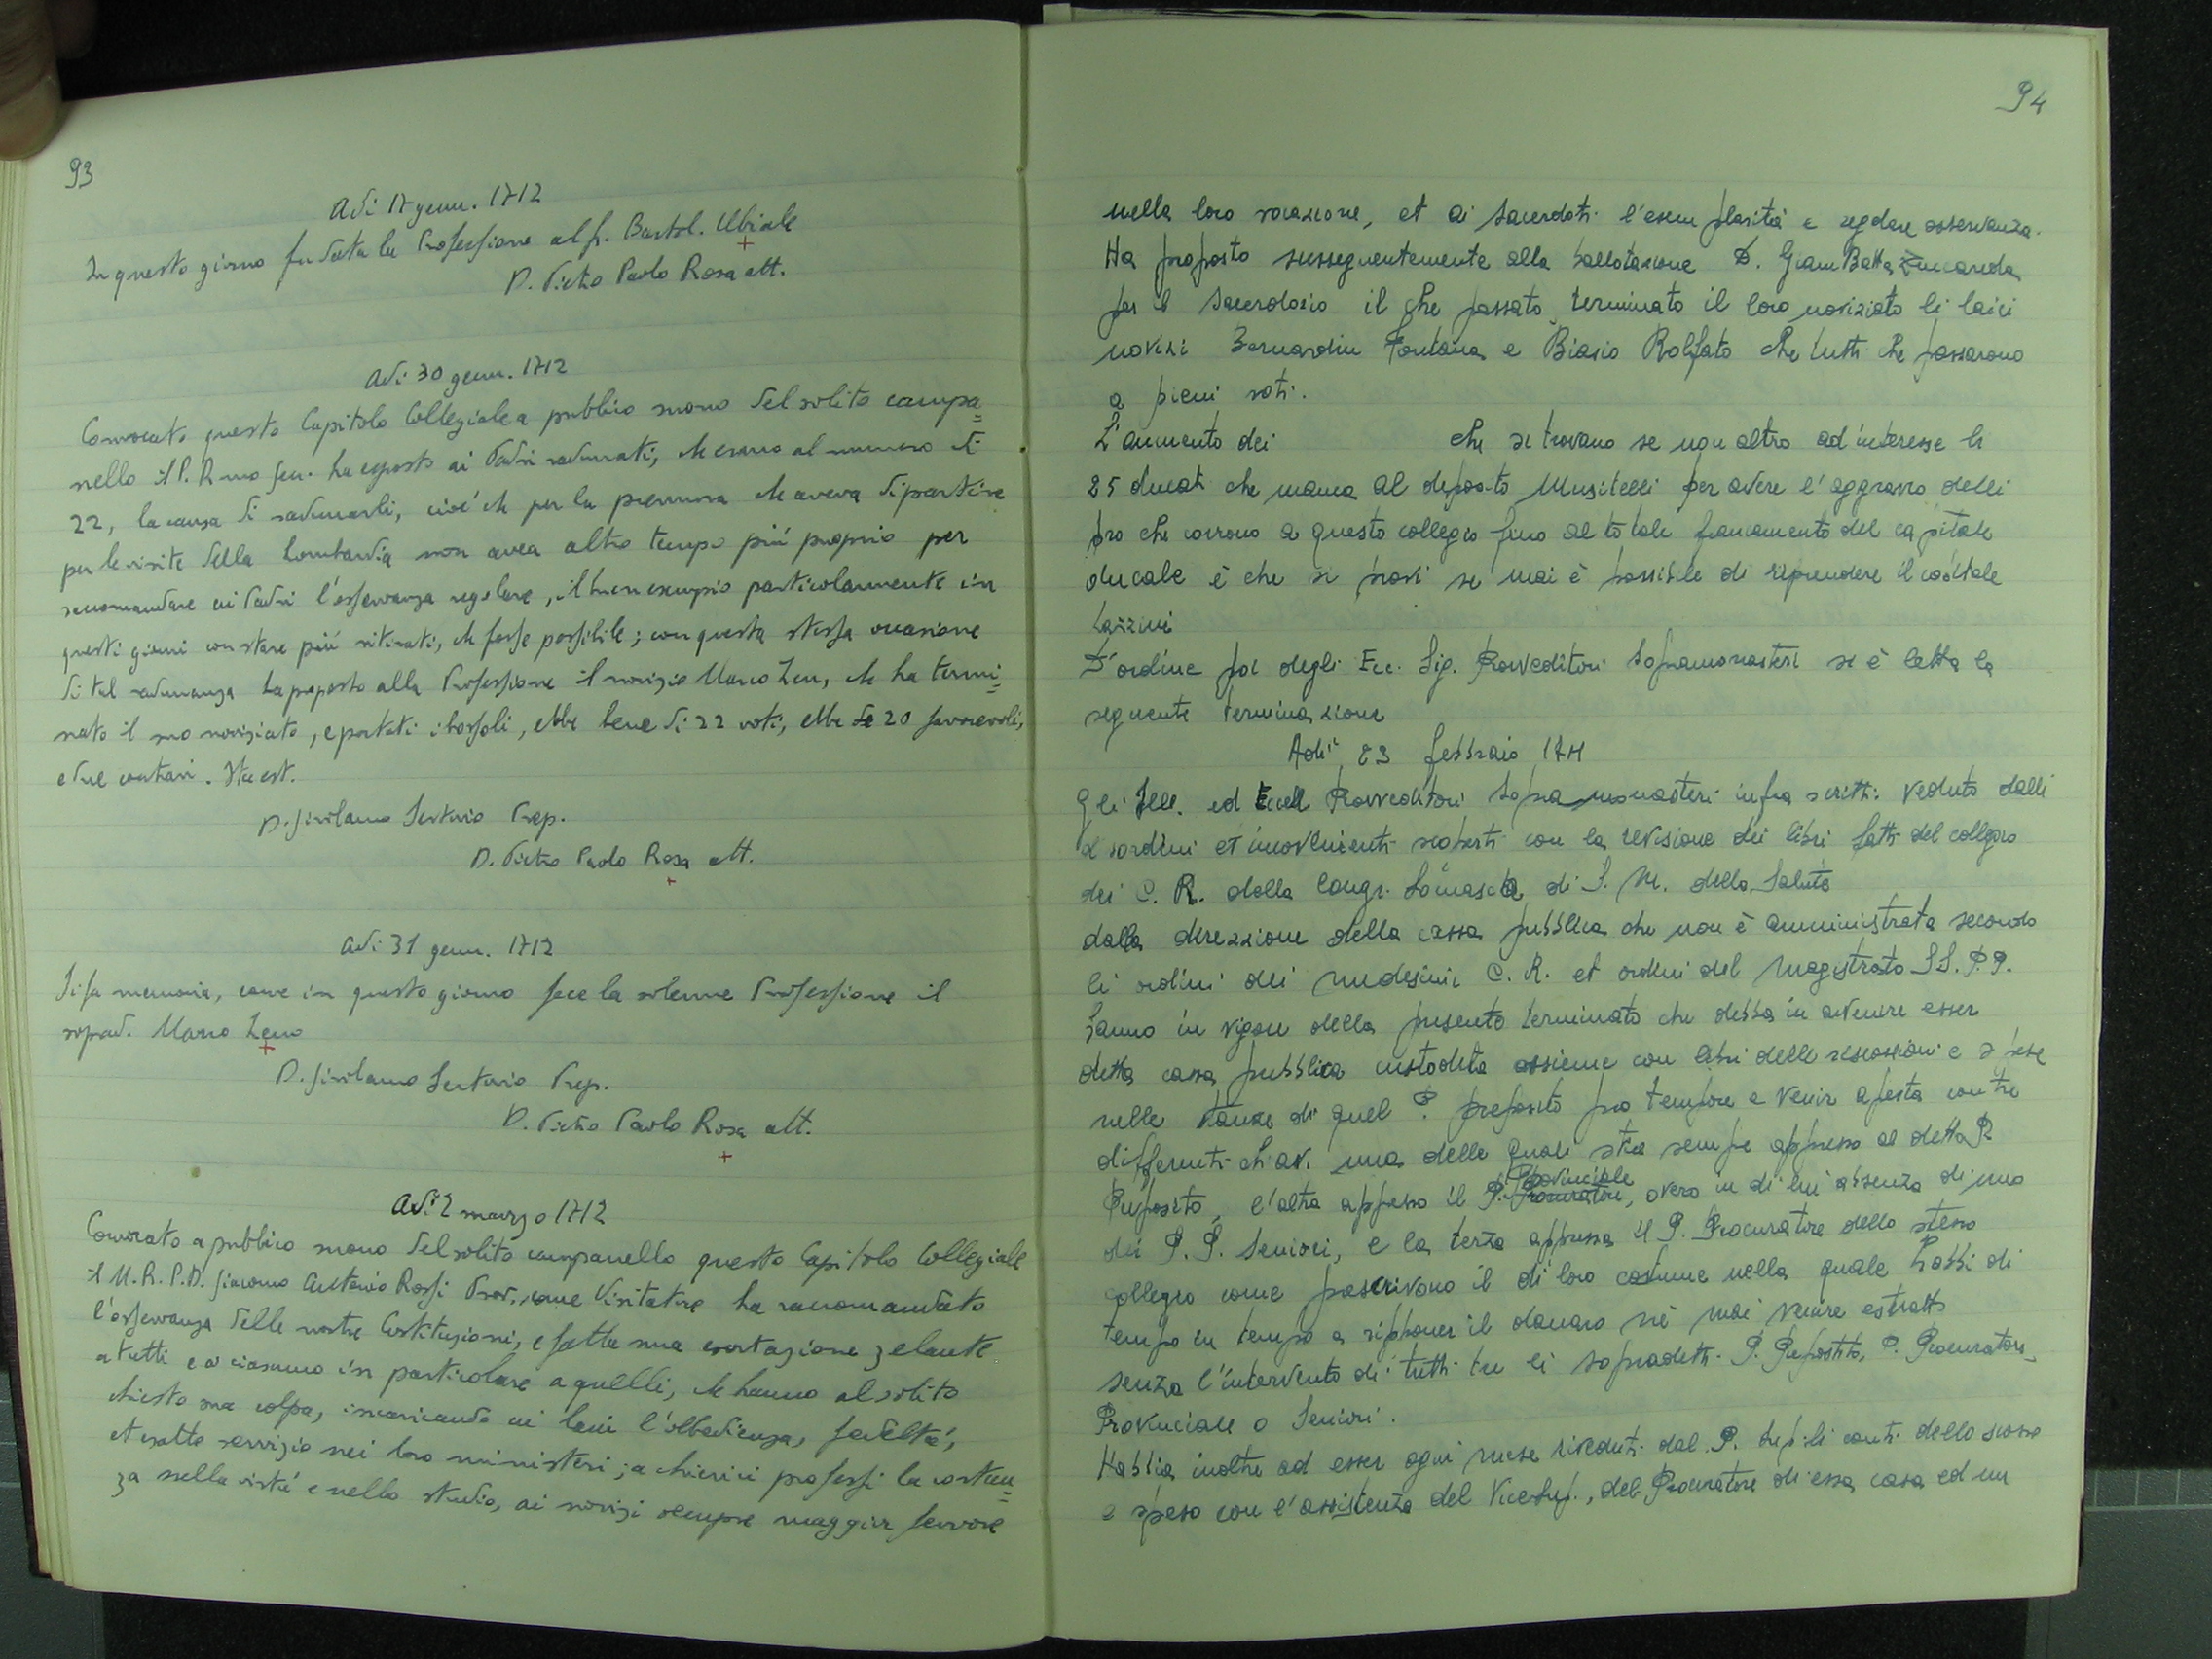 93
Adi 17 genn. 1712
In questo giorno fu data la Professione al fr. Bartol. Ubiale
D. Pietro Paolo Rosa att.
Adi 30 genn. 1712
Convocato questo Capitolo Collegiale a pubblico suono del solito campa=
nello il P. R.mo Gen. ha esposto ai Padri radunati, che erano al numero di
22, la causa di radunarli, cioé che per la premura che aveva di partire
per le visite della Lombardia non avea altro tempo piú proprio per
raccomandare ai Padri l'osservanza regolare, il buon esempio particolarmente in
questi giorni con stare piú ritirati, che fosse possibile; con questa stessa occasione
di tal radunanza ha proposto alla Professione il novizio Marco Zen, che ha termi=
nato il suo noviziato, e portati i bossoli, ebbe bene di 22 voti, ebbe de 20 favorevoli,
e due contrari. Ita est.
D. Girolamo Sertorio Prep.
D. Pietro Paolo Rosa att.
Adi 31 genn. 1712
Si fa memoria, come in questo giorno fece la solenne Professione il
soprad. Marco Zeno
D. Girolamo Sertorio Prep.
D. Pietro Paolo Rosa att.
Adi 2 marzo 1712
Convocato a pubblico suono del solito campanello questo Capitolo Collegiale
il M. R. P. D. Giacomo Antonio Rossi Prov., come Visitatore ha raccomandato
l'osservanza delle nostre Costituzioni, e fatta una esortazione zelante
a tutti e a ciascuno in particolare a quelli, che hanno al solito
chiesto sua colpa, incaricando ai laici l'obbedienza, fedeltá,
et esatto servizio nei loro ministeri; a chierici professi la costan=
za nella virtú e nello studio, ai novizi sempre maggior fervore
94
nella loro vocazione, et ai sacerdoti l'esemplarità e regolare osservanza.
Ha proposto sussequentemente alla ballotazione D. Giam Batta
per il sacerdozio il che passato, terminato il loro noviziato li laici
novizi Bernardin Fontana e Biasio Rolfato che tutti che passarono
a pieni voti.
L'aumento dei che si trovano se non altro ad interesse li
25 ducati che manca al deposito Musitelli per avere l'aggravio delli
pro che corrono a questo collegio fino al totale francamento del capitale
ducale è che si provi se mai è possibile di riprendere il capitale
Lazzini
D'ordine poi degli Ecc. Sig. Provveditori sopramonasteri si è letta la
seguente terminazione
Adi' 23 febbraio 1711
Gli Ill. ed Eccell Provveditori sopra monasteri infra scritti. Veduto dalli
disordini et inconvenienti scoperti con la revisione dei libri fatti del collegio
dei C. R. della Congr. Somasca di S. M. della Salute
dalla direzione della cassa pubblica che non è amministrata secondo
li ordini dei medesimi C. R. et ordini del magistrato SS. P.P.
hanno in vigore della presente terminato che debba in avenire esser
detta cassa pubblica custodita assieme con libri delle riscossioni e spese
nelle stanze di quel P. preposito pro tempore e venir aperta con tre
differenti chiav. una delle quali stia sempre appresso al detto P.
Preposito, l'altra appresso il P. Provinciale, overo in di lui absenza di uno
dei P. P. Seniori, e la terza appresso il P. Procuratore dello stesso
collegio come prescrivono il di loro costume nella quale habbi di
tempo in tempo a ripponer il danaro nè mai venire estratto
senza l'intervento di tutti tre li sopradetti P. Preposito, P. Procuratore,
Provinciale o Seniori.
Habbia inoltre ad esser ogni mese riveduti dal P. Sup. li conti dello scosso
e speso con l'assistenza del ViceSup., del Procuratore di essa casa ed un